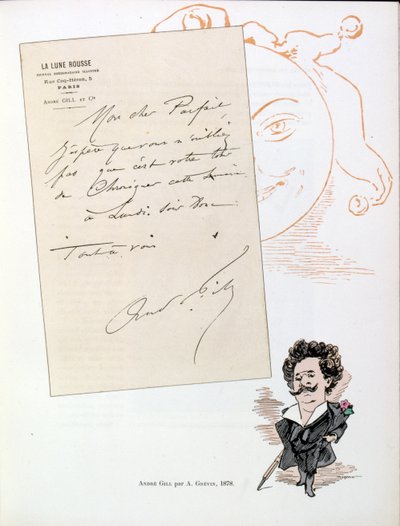 LA LUNE ROUSSE
JOURNAL HEBDOMADAIRE ILLUSTRÉ
Rue Coq-Héron, 5
PARIS
ANDRÉ GILL ET Cie
Mon cher Parfait,
J'espère que vous n'oubliez
pas que c'est votre tour
de Chroniquer cette semaine
à Lundi soir Donc.
Tout à vous
André Gill
ANDRÉ GILL par A. GRÉVIN, 1878.